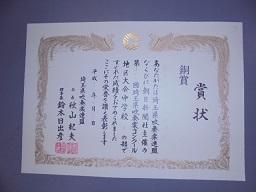 銅賞
賞状
あなたがたは埼玉県吹奏楽連盟
ならびに朝日新聞社主催の
第 回埼玉県吹奏楽コンクール
地区大会中学校 の部で
すぐれた成績をおさめられました
ここにその栄誉を讃え表彰します
平成 年 月 日
埼玉県吹奏楽連盟
秋山紀夫
理事長 鈴木日出彦